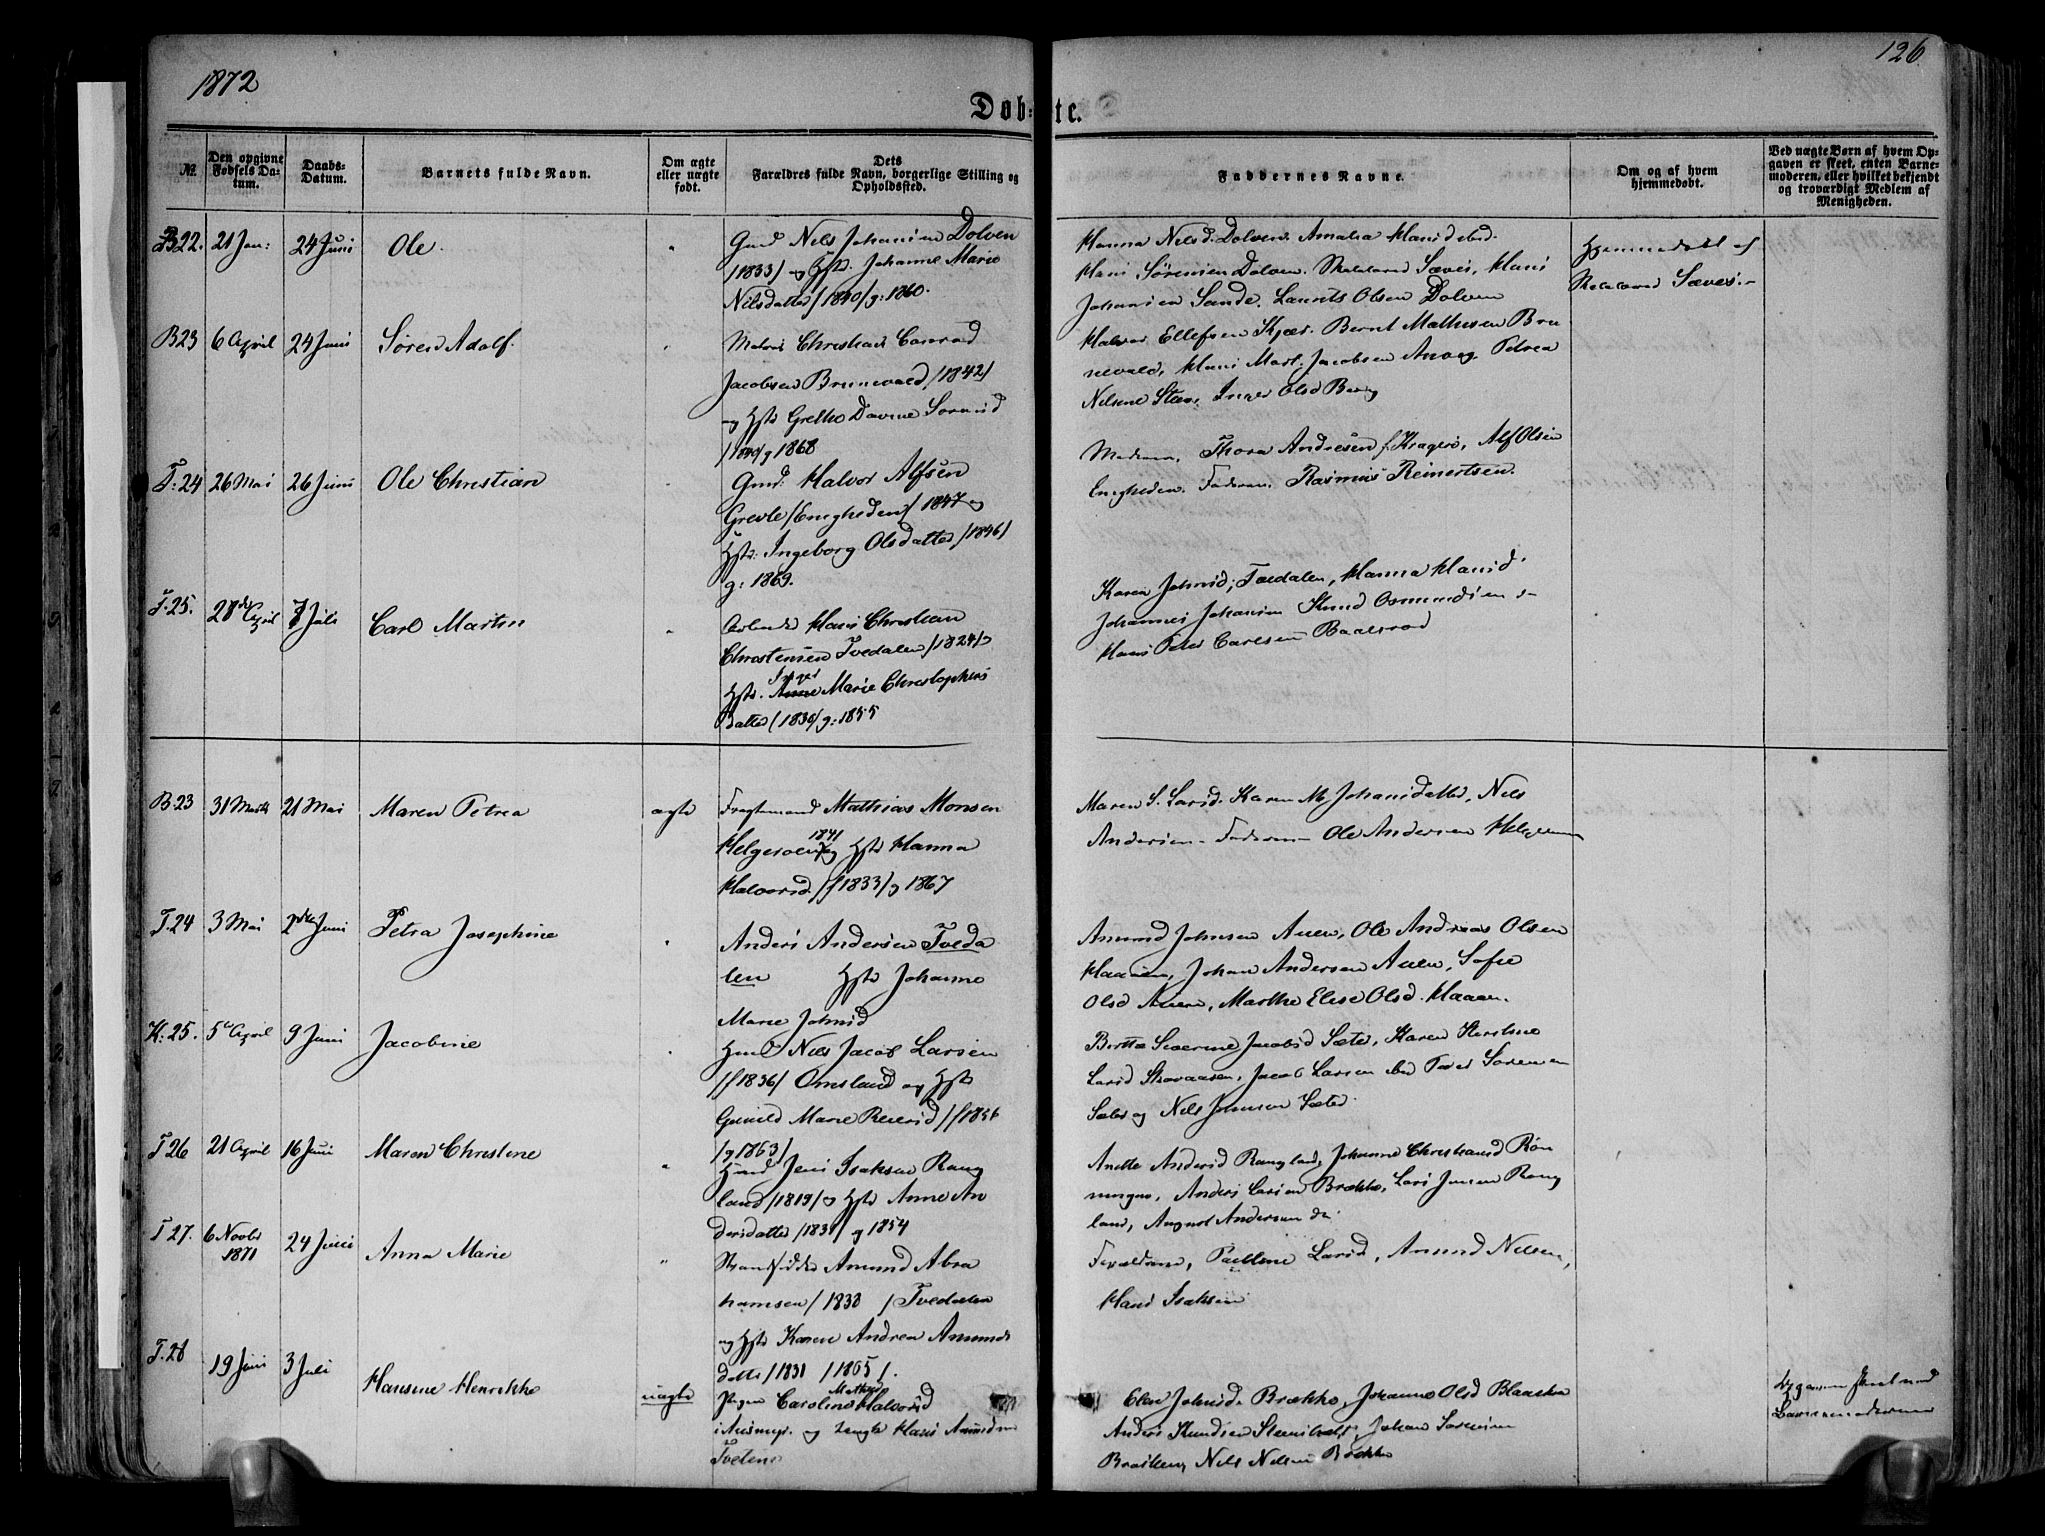 1872
126
Døb-
te.
No.
Den opgivne
Fødsels Da-
tum.
Daabs-
Datum.
Barnets fulde Navn.
Om ægte
eller uægte
født.
Dets
Forældres fulde Navn, borgerlige Stilling og
Opholdssted.
Faddernes Navne.
Om og af hvem
hjemmedøbt.
Ved uægte Børn af hvem Op-
gaven er skeet, enten Barne-
moderen, eller hvilket bekjendt
og troværdigt Medlem af
Menigheden.
B22. 21 Jan: 24 Juni Ole.
Gmd Nils Johansen Dolven
/1833/ og Hst. Johanne Marie
Nilsdatter /1840/ g: 1860.
Hanna Nilsd. Dolven. Amalia Hansd ibd.
Hans Sörensen Dolven. Sæves, Hans
Johansen Sande. Laurits Olsen Dolven
Hjemmedöbt af
Sæves.
B23 6 April 24 Juni Sören Adolf.
Matros Christian Conrad
Jacobsen Brunevald /1842/
og Hst Grethe Davine Sörensd
g 1868
Halvor Ellefsen Kjær. Bernt Mathisen Bru
nevald, Hans Mart. Jacobsen Petrea
Nilsene Steen, Inger Olsd Berg
T:24 26 Mai 26 Juni Ole Christian
Gmd. Halvor Alfsen
Grevle /Enigheden/ 1847 og
Hst: Ingeborg Olsdatter /1846/
g: 1869.
Moderen, Thora Andresen f. Kragerö, Alf Olsen
Enigheden. Faderen. Rasmus Reinertsen.
T.25. 28de April 7 Juli Carl Martin
Arbeider Hans Christian
Christensen Tvedalen /1824/ og
Inger
Hst. Anne Marie Christophers
datter /1830/ g: 1855
Karen Johnsd, Tvedalen, Hanna Hansd.
Johannes Johansen Knud Osmundsen
Hans Peter Carlsen Baalsrød
B23 31 Marts 21 Mai Maren Petrea ægte
Fragtemand Mathias Monsen
1841
Helgeroen og Hst Hanna
Halvorsd. /f 1833/ g 1867
Maren S. Larsd. Karen M. Johansdatter, Nils
Andersen - Faderen - Ole Andersen Helgeroen
T.24 3 Mai 2den Juni Petra Josephine
Anders Andersen Tveda
len Hst Johanne
Marie Johnsd
Amund Johnsen Auen, Ole Andreas Olsen
Haaaen, Johan Andersen Auen, Sofie
Olsd Auen, Marthe Elise Olsd. Haaen.
K:25. 5 April 9 Juni Jacobine
Gmd Nils Jacob Larsen
/f 1836/ Omsland og Hst
Gunild Marie Reiersd /f 1836
/g 1863/
Birthe Severine Jacobsd Sæter, Karen Kirstine
Larsd Skovaasen, Jacob Larsen ibd Peder Sörensen
Sæter og Nils Jensen Sæter.
T26 21 April 16 Juni Maren Christine
Gmd Jens Isaksen Rang
land /1819/ og Hst Anne An
dersdatter /1831/ g 1854
Anette Andersd Rangland, Johanne Christiansd Rön
ningen, Anders Larsen Brække, Lars Jensen Rang
land, August Andersen do
T27. 6 Novbr
1871
24 Juni Anna Marie
Strandsidder Amund Abra
hamsen /1838 / Tvedalen
og Hst Karen Andrea Amunds
datter /1831 /1865/.
Forældrene, Pauline Larsd, Amund Nilsen,
Hans Isaksen
T.28 19 Juni 3 Juli Hansine Henrikke uægte
Mathea
Pigen Caroline Halvorsd
og Ungk Hans Amundsen
Tvetene
Elen Johnsd. Brække, Johanne Olsd Blaaskov
Anders Knudsen Johan Sörensen
Nils Nilsen Brække
Barnemoderen